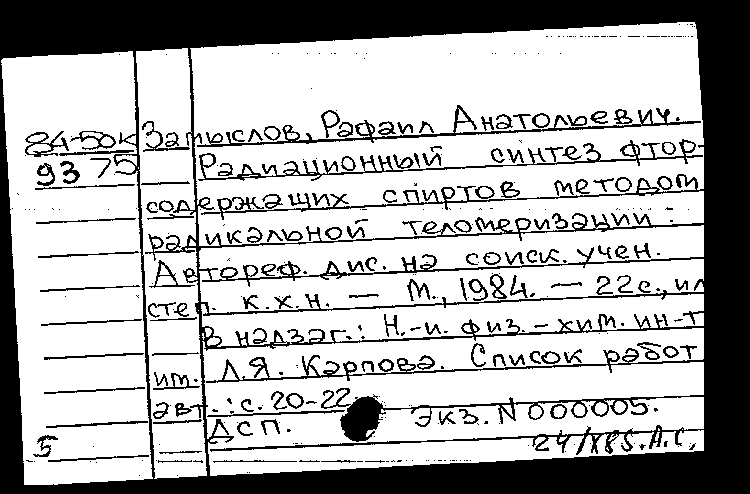 84-50к Замыслов, Рафаил Анатольевич.
9375 Радиационный синтез фтор-
содержащих спиртов методом
радикальной теломеризации :
Автореф. дис. на соиск. учен.
степ. к.х.н. — М., 1984. — 22с., ил
В надзаг.: Н.-и. физ.-хим. ин-т
им. Л.Я. Карпова. Список работ
авт.: с. 20-22
ДСП. Экз. N 000005.
5 24/X85. А.С,